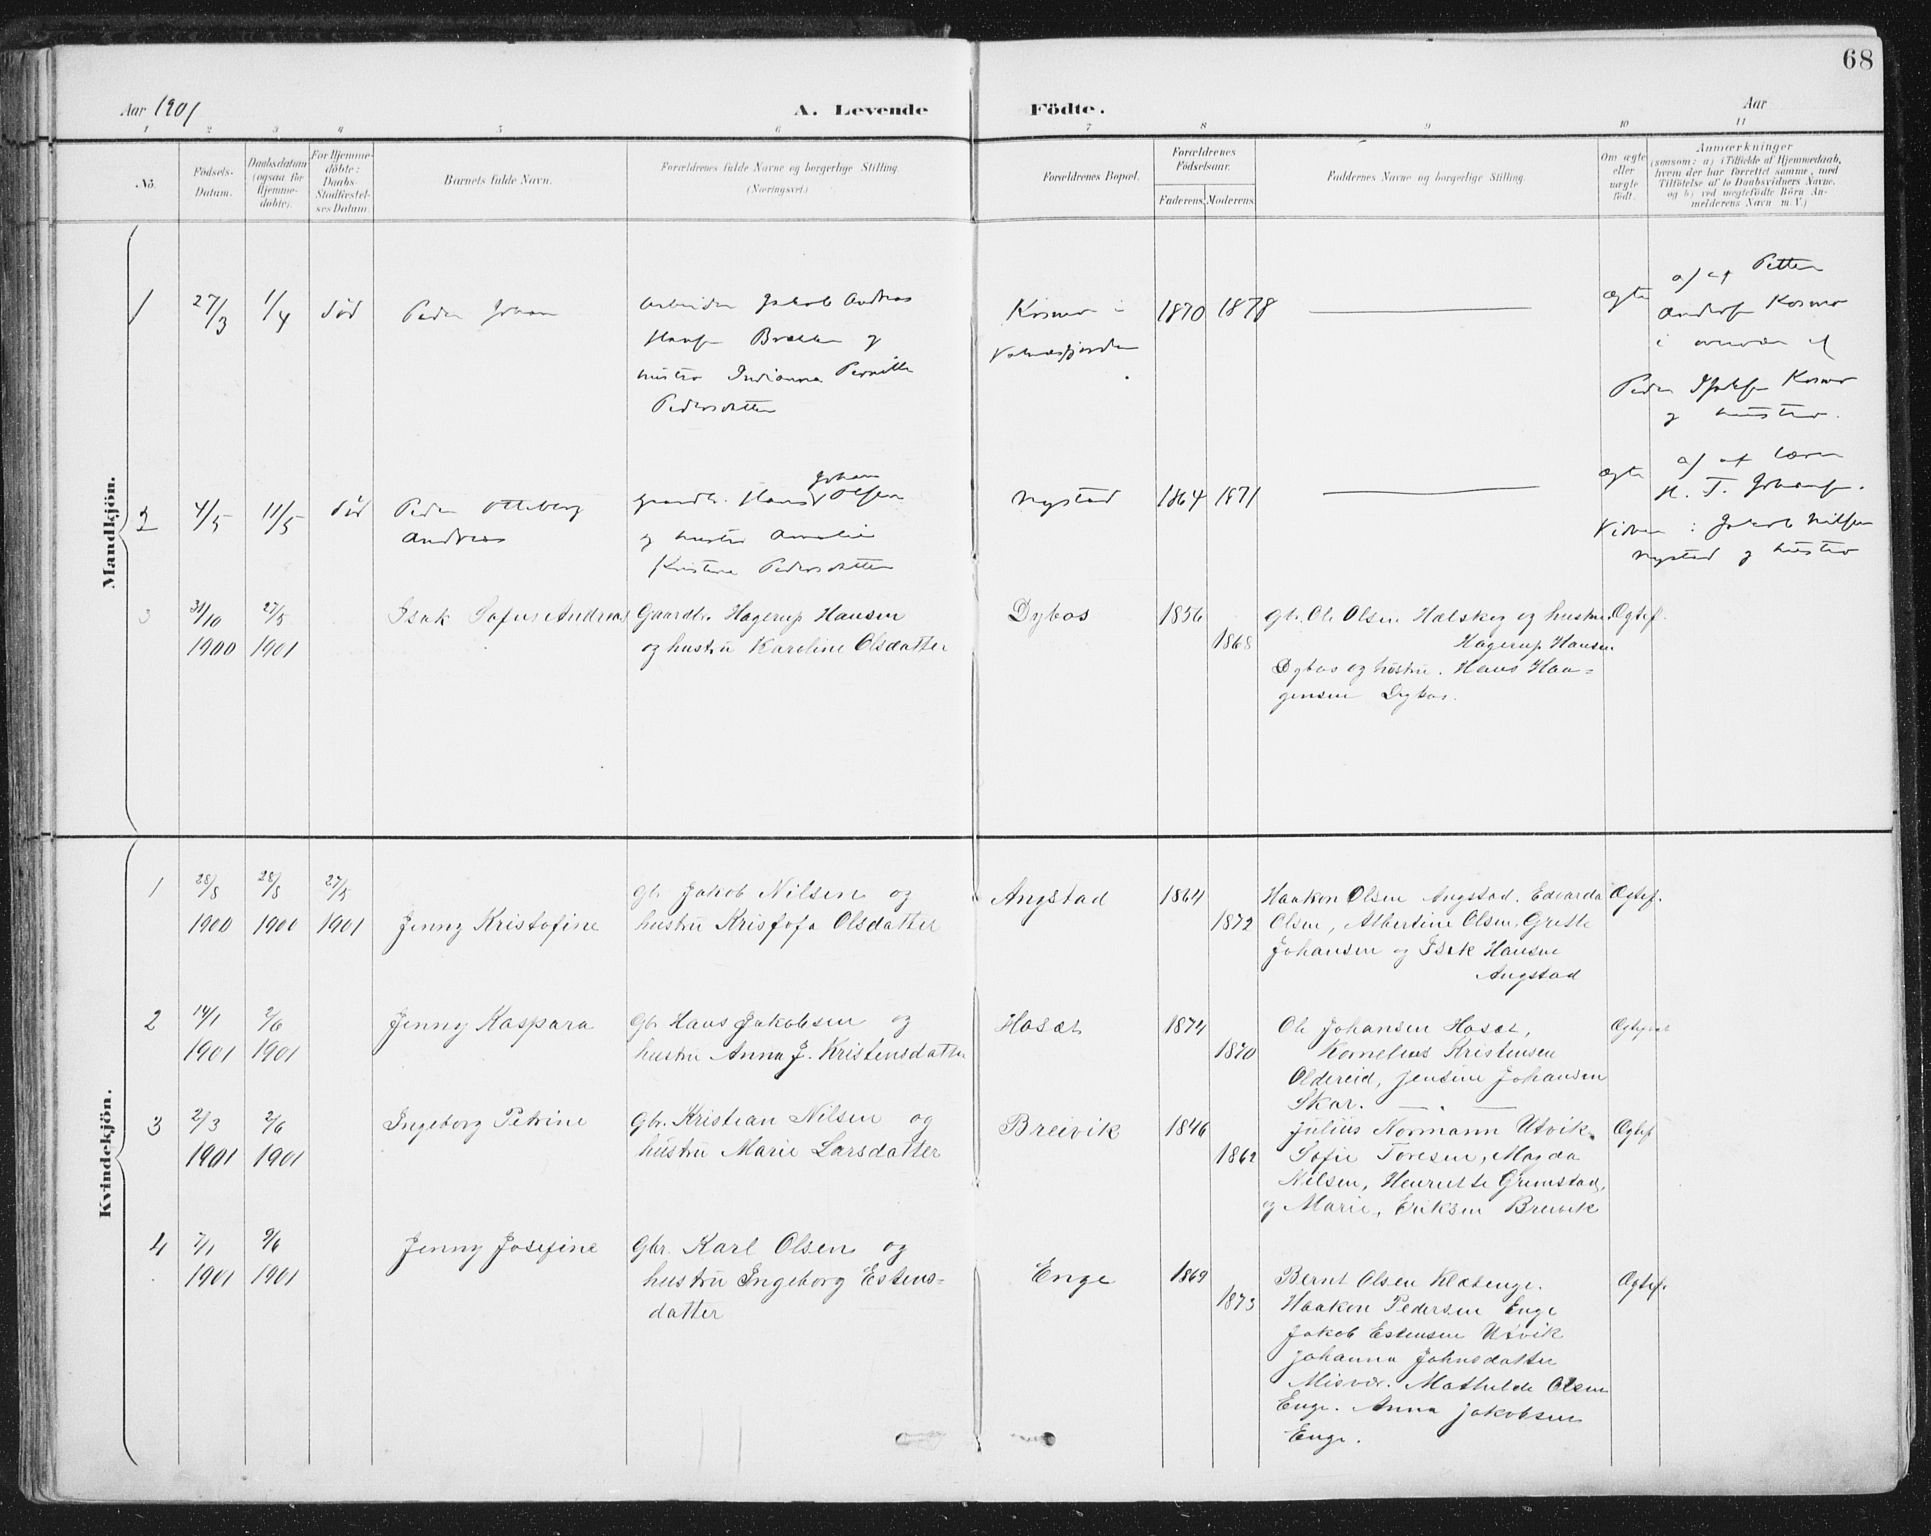 68
Aar 1901
A. Levende Födte.
Aar
1 2 3 4 5 6 7 8 9 10 11
No.
Födsels-
Datum.
Daabsdatum
(ogsaa for
Hjemme-
döbte).
For Hjemme-
döbte:
Daabs-
Stadfæstel-
ses Datum.
Barnets fulde Navn.
Forældrenes fulde Navne og borgerlige Stilling.
(Næringsvei.)
Forældrenes Bopæl.
Forældrenes
Födselsaar.
Faderens. Moderens.
Faddernes Navne og borgerlige Stilling.
Om ægte
eller
uægte
födt.
Anmærkninger
(saasom: a) i Tilfælde af Hjemmedaab,
hvem der har forrettet samme, med
Tilföielse af to Daabsvidners Navne,
og b) ved uegtefödte Börn An-
melderens Navn m. V.)
Mandkjön.
1 27/3 1/4 död Peder Johan
Arbeider Jakob Andreas
Hansen og
hustru Indianna Pernille
Pedersdatter
Kosmo i
Valnesfjorden
1870 1878
ægte
a) af Petter
Andersen Kosmo
i overvær af
Peder Kosmo
og hustru.
2 4/5 11/5 död Peder Otteberg
Andreas
Gaardbr. Hans Johan Olsen
og hustru Amalie
Kristine Pedersdatter
Nystad
1864 1871
ægte
a) af Lærer
H. T. Johansen.
Vidner: Jakob Nilsen
Nystad og hustru
3 31/10 27/5 Isak Sofus Andreas
1900 1901
Gaardbr. Hagerup Hansen
og hustru Karoline Olsdatter
Dybos
1856
1868
gbr. Ole Olsen Halskog og hustru.
Hagerup Hansen
Dybos og hustru. Hans Haa-
gensen Dybos.
Ægtef.
Kvindekjön.
1 28/8 28/8 27/5
1900 1900 1901 Jenny Kristofine
gbr. Jakob Nilsen og
hustru Kristofa Olsdatter
Angstad
1864
1872
Haakon Olsen Angstad. Edvarda
Olsen, Albertine Olsen, Grette
Johansen og Isak Hansen
Angstad
Ægtef.
2 14/1 2/6 Jenny Kaspara
1901 1901
Gbr. Hans Jakobsen og
hustru Anna J. Kristensdatter
Hosæt
1874
1870
Ole Johansen Hosæt,
Kornelius Kristensen
Oldereid, Jensine Johansen
Skar.
3 2/3 2/6 Ingeborg Petrine
1901 1901
Gbr. Kristian Nilsen og
hustru Marie Larsdatter
Breivik
1846
1862
Julius Normann Utvik.
Sofie Toresen, Magda
Nilsen, Henriette Grimstad,
og Marie Eriksen Breivik
Ægtef
4 7/1 9/6 Jenny Josefine
1901 1901
Gbr. Karl Olsen og
hustru Ingeborg Estens-
datter
Enge
1869
1873
Bernt Olsen Klætenge.
Haakon Pedersen Enge
Jakob Estensen Utvik
Johanna Johnsdatter
Misvær. Mathilde Olsen
Enge. Anna Jakobsen
Enge.
Ægtef.